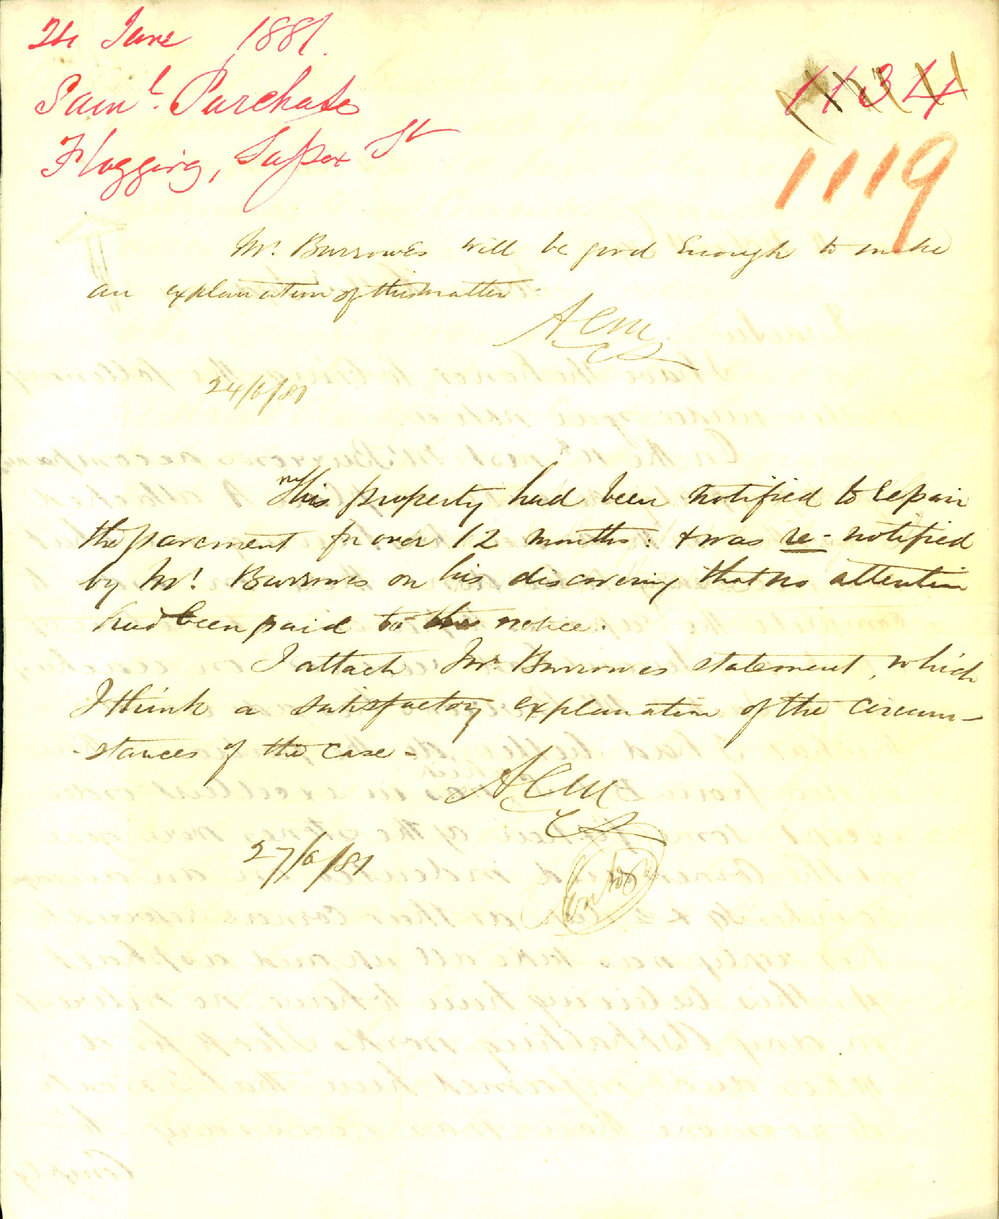 24 June 1881.
Saml. Purchase
Flagging, Sussex St
1134
1119
Mr. Burrowes will be good enough to make
an explanation of this matter.
ACM
CS
24/6/81
This property had been notified to repair
the pavement for over 12 months: & was re-notified
by Mr. Burrowes on his discovering that no attention
had been paid to the notice.
I attach Mr. Burrowes statement, which
I think a satisfactory explanation of the circum-
-stances of the case -
ACM
CS
27/6/81